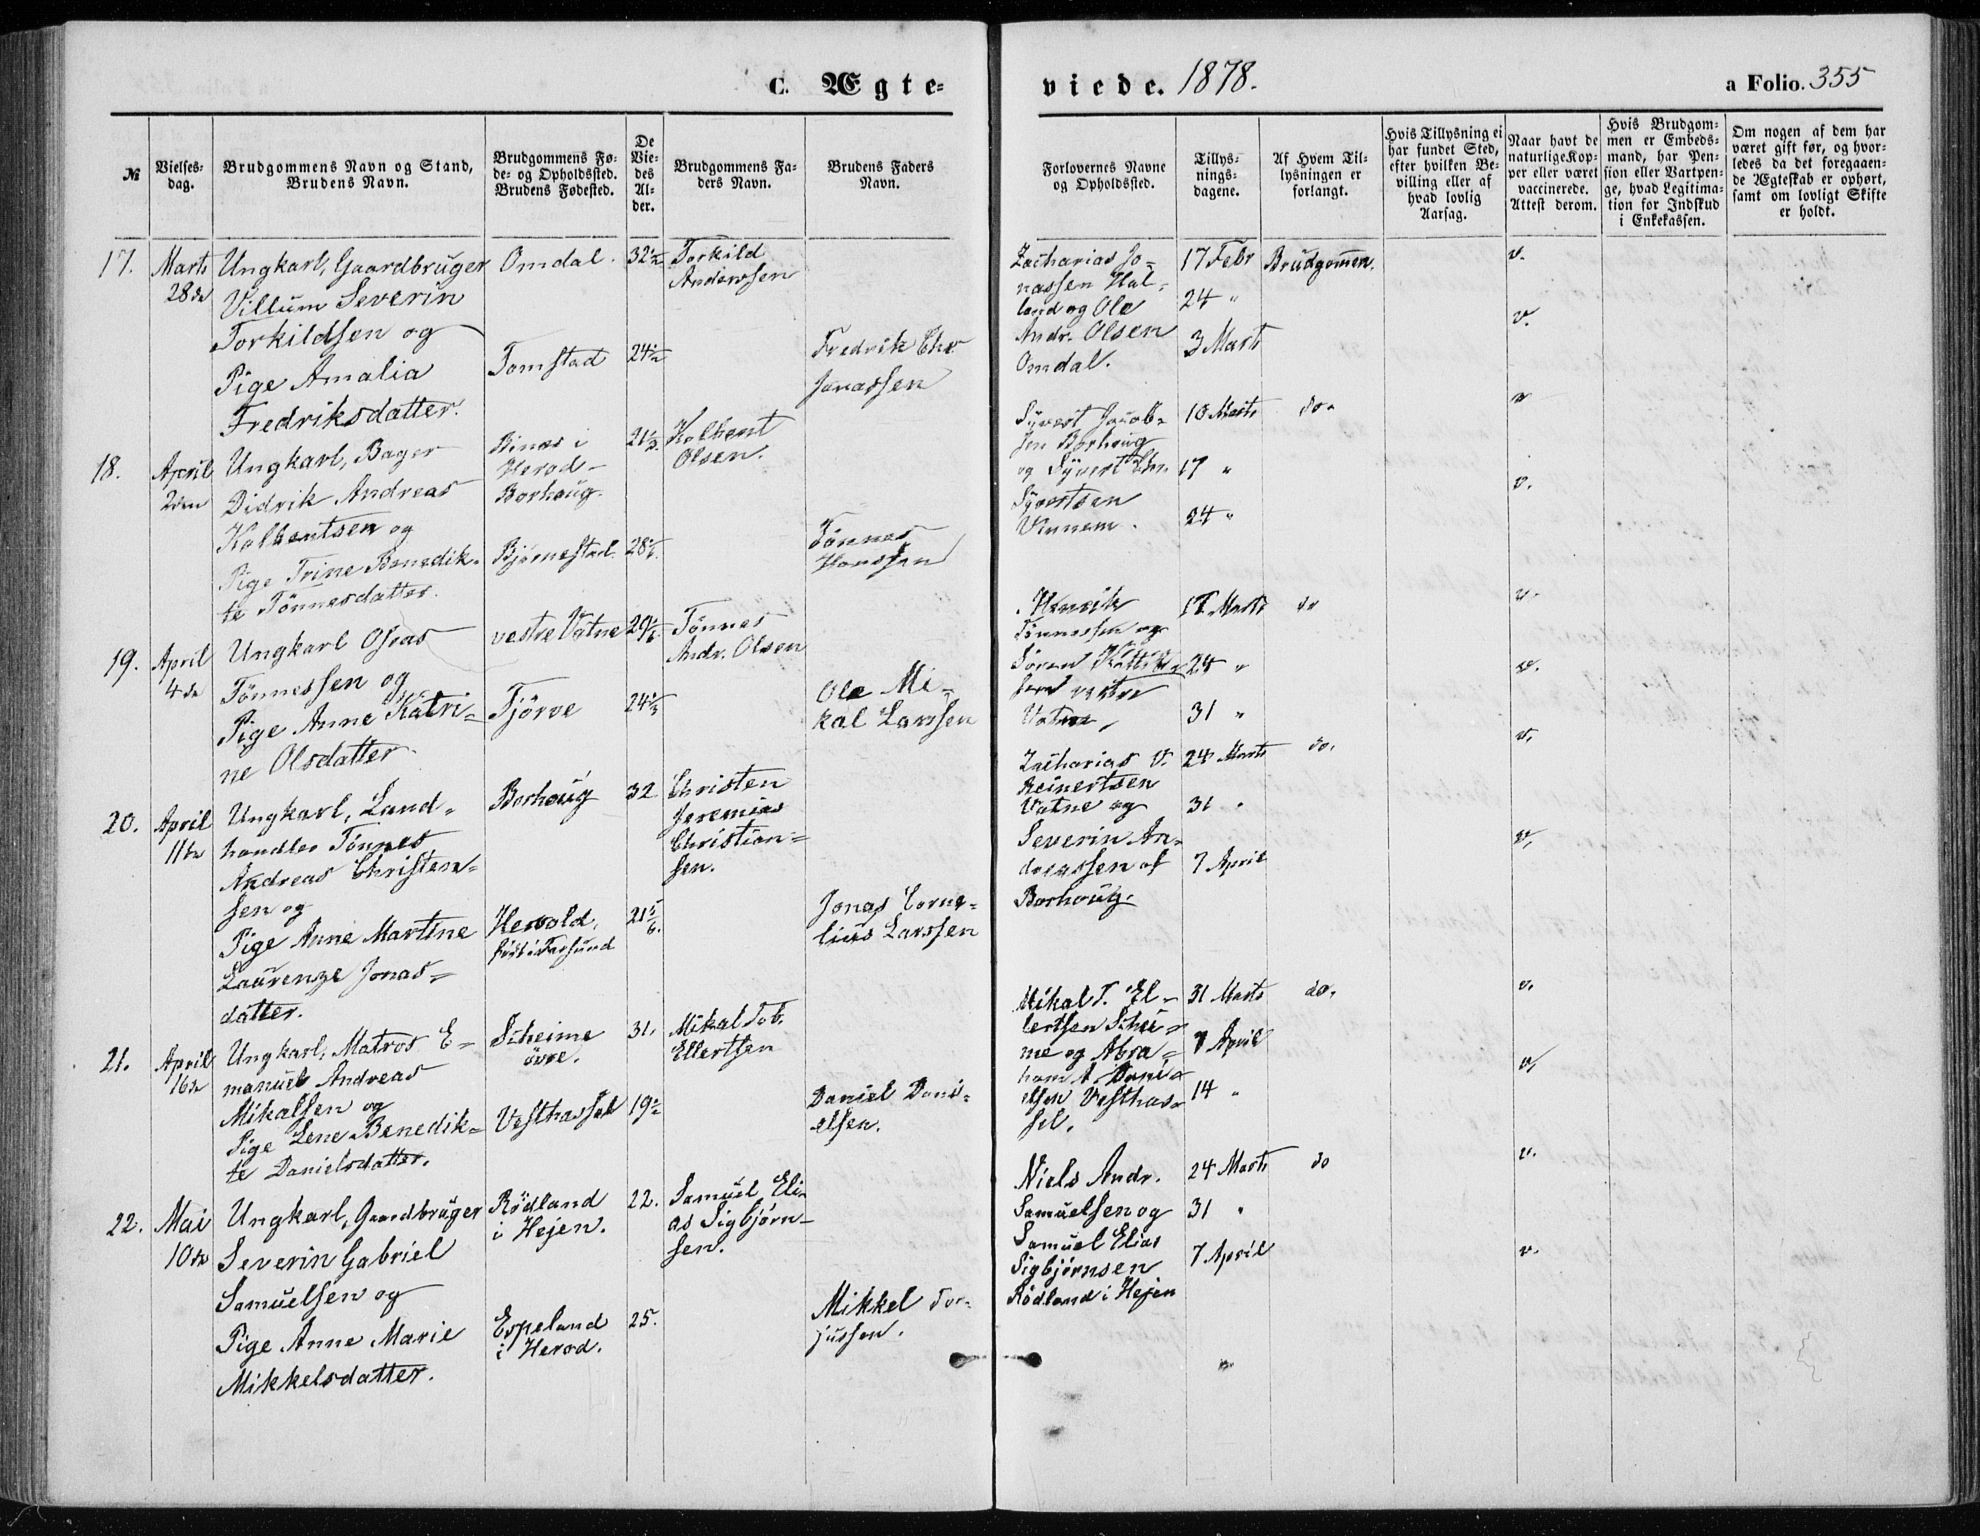 C. Ægte-
viede. 1878.
a Folio. 355
№
Vielses-
dag.
Brudgommens Navn og Stand,
Brudens Navn.
Brudgommens Fø-
de- og Opholdssted.
Brudens Fødested.
De
Vie-
des
Al-
der.
Brudgommens Fa-
ders Navn.
Brudens Faders
Navn.
Forlovernes Navne
og Opholdssted.
Tillys-
nings-
dagene.
Af Hvem Til-
lysningen er
forlangt.
Hvis Tillysning ei
har fundet Sted,
efter hvilken Be-
villing eller af
hvad lovlig
Aarsag.
Naar havt de
naturlige Kop-
per eller været
vaccinerede.
Attest derom.
Hvis Brudgom-
men er Embeds-
mand, har Pen-
sion eller Vartpen-
ge, hvad Legitima-
tion for Indskud
i Enkekassen.
Om nogen af dem har
været gift før, og hvor-
ledes da det foregaaen-
de Ægteskab er ophørt,
samt om lovligt Skifte
er holdt.
17.
Marts
28de
Ungkarl, Gaardbruger
Villum Severin
Torkildsen og
Pige Amalia
Fredriksdatter.
Omdal.
Tomstad
32 1/2
24 1/2
Torkild
Anderssen
Fredrik Chr.
Jonassen
Zacharias Jo-
nassen Hal-
land og Ole
Andr. Olsen
Omdal.
17 Febr
24 "
3 Marts
Brudgommen.
v.
v.
18.
April
2den
Ungkarl, Bager
Didrik Andreas
Kolbentsen og
Pige Trine Benedik-
te Tönnesdatter.
i
Herod-
Borhoug.
Bjørnestad.
21 1/2
Kolbent
Olsen.
Tönnes
Hanssen
Syvert Jacob-
sen Borhoug
og Syvert Chr.
Syvertsen
Vinnem.
10 Marts
17 "
24 "
do.
v
v.
19.
April
4de
Ungkarl Oseas
Tönnessen og
Pige Anne Katri-
ne Olsdatter
vestre Vatne
Tjörve
24 1/3
Tönnes
Andr. Olsen
Ole Mi-
kal Larssen
Henrik
Tönnessen og
Sören
vestre
Vatne,
17 Marts
24 "
31 "
do
v.
v.
20.
April
11te
Ungkarl, Land-
handler Tönnes
Andreas Christen-
sen og
Pige Anne Martine
Laurenze Jonas-
datter.
Borhoug
Hervold,
født i Farsund
32
21 5/6.
Christen
Jeremias
Christian-
sen.
Jonas Corne-
lius Larssen
Zacharias V.
Reinertsen
Vatne og
Severin An-
dreassen af
Borhoug.
24 Marts
31 "
7 April
do.
v.
v.
21.
April
16de
Ungkarl, Matros E-
manuel Andreas
Mikalsen og
Pige Lene Benedik-
te Danielsdatter.
Scheime
övre.
Vesthassel
31.
19 1/2
Mikal Tob.
Ellertsen
Daniel Dani-
elsen.
Mikal T. El-
lertsen Schei-
me og Abra-
ham A. Dani-
elsen Vesthas-
sel.
31 Marts
7 April
14 "
do.
v.
v,
22.
Mai
10de
Ungkarl, Gaardbruger
Severin Gabriel
Samuelsen og
Pige Anne Marie
Mikkelsdatter.
Rödland
i Hejen.
Espeland
i Herod.
22.
25.
Samuel Eli-
as Sigbjörn-
sen.
Mikkel Tor-
jussen.
Niels Andr.
Samuelsen og
Samuel Elias
Sigbjørnsen
Rödland i Hejen
24 Marts
31 "
7 April
do
v.
v.